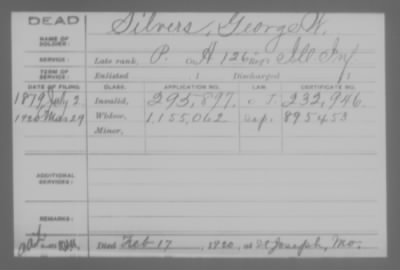 DEAD
NAME OF SOLDIER: Silvers, George W.
SERVICE: Late rank, P. Co. H 126 Reg't Ill Inf
TERM OF SERVICE: Enlisted , 1 Discharged , 1
DATE OF FILING. CLASS. APPLICATION NO. LAW. CERTIFICATE NO.
1879 July 2 Invalid, 295,897. 232,946.
1920 Mar 29 Widow, 1,155,062 895453
Minor,
ADDITIONAL SERVICES:
REMARKS:
Died Feb 17, 1920, at St Joseph, Mo.